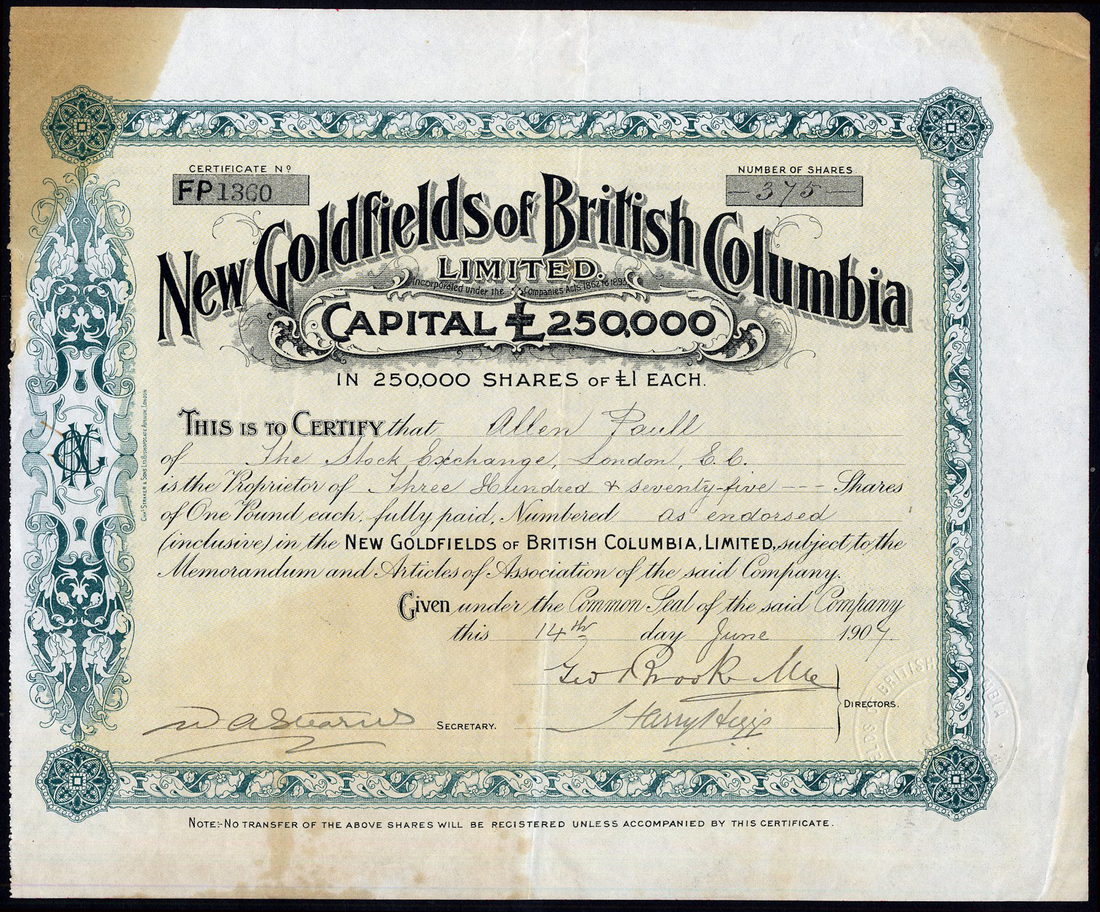 CERTIFICATE Nº
FP 1360
NUMBER OF SHARES
— 375 —
New Goldfields of British Columbia
LIMITED.
Incorporated under the Companies Acts, 1862 to 1893
CAPITAL £250,000
IN 250,000 SHARES OF £1 EACH.
THIS IS TO CERTIFY that Allen Paull
of The Stock Exchange, London, E.C.
is the Proprietor of Three Hundred & seventy-five --- Shares
of One Pound each, fully paid, Numbered as endorsed
(inclusive) in the NEW GOLDFIELDS OF BRITISH COLUMBIA, LIMITED, subject to the
Memorandum and Articles of Association of the said Company.
Given under the Common Seal of the said Company
this 14th day June 1907
Geo Brooke
Harry Higgs
DIRECTORS.
SECRETARY.
NOTE:-NO TRANSFER OF THE ABOVE SHARES WILL BE REGISTERED UNLESS ACCOMPANIED BY THIS CERTIFICATE.